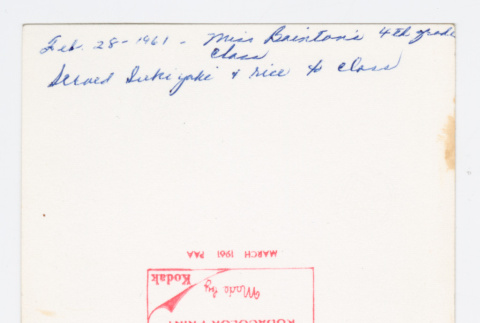 Feb. 28-1961 - Miss Bainton's 4th grade
class
Served Sukiyaki & rice to class
MARCH 1961 PAA
Kodak
Made by